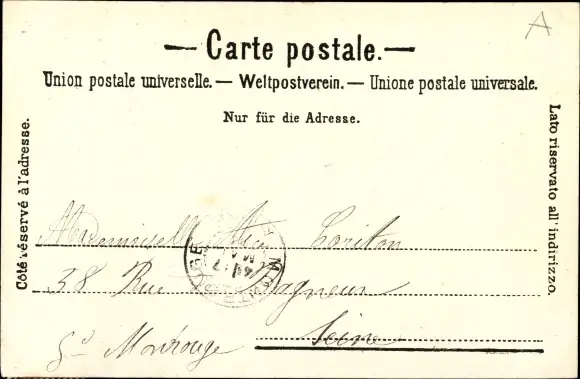 A
— Carte postale. —
Union postale universelle. — Weltpostverein. — Unione postale universale.
Nur für die Adresse.
Côté réservé à l'adresse.
Lato riservato all' indirizzo.
Mademoiselle
58 Rue Bagneux
Gd Montrouge
Seine